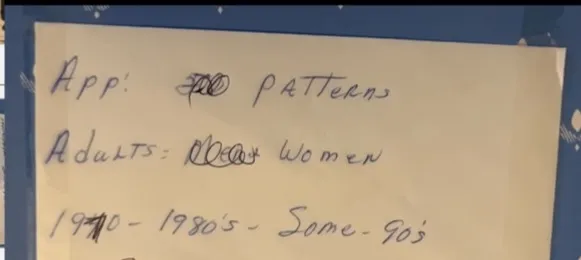 App: PATTERNS
Adults: Women
1970 - 1980's - Some - 90's